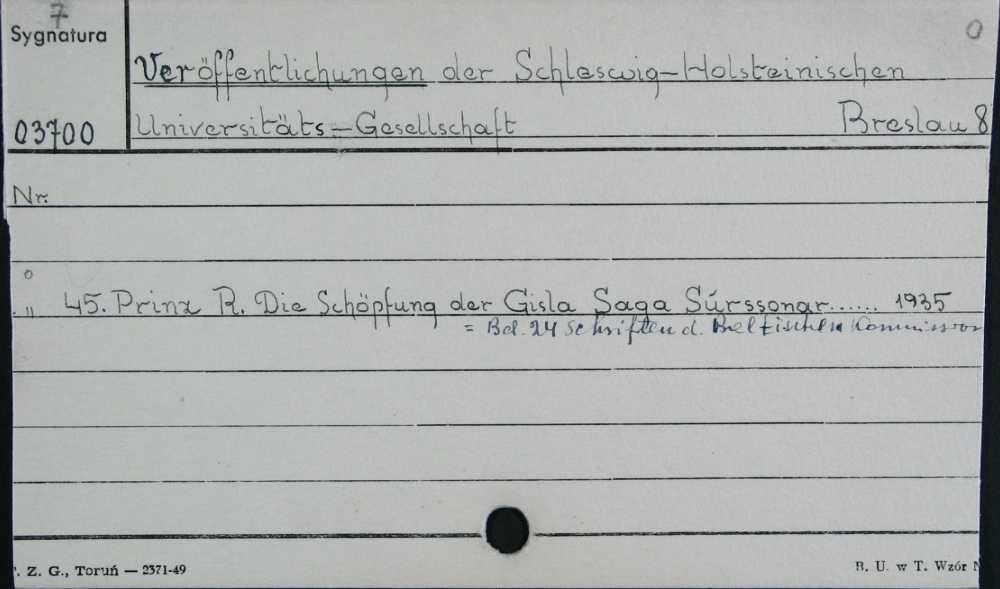 7
Sygnatura
0
Veröffentlichungen der Schleswig-Holsteinischen
03700 Universitäts-Gesellschaft Breslau 8
Nr.
o
" 45. Prinz R. Die Schöpfung der Gisla Saga Súrssonar...... 1935
= Bd. 24 Schriften d. Baltischen Kommission
. Z. G., Toruń — 2371-49 B. U. w T. Wzór N